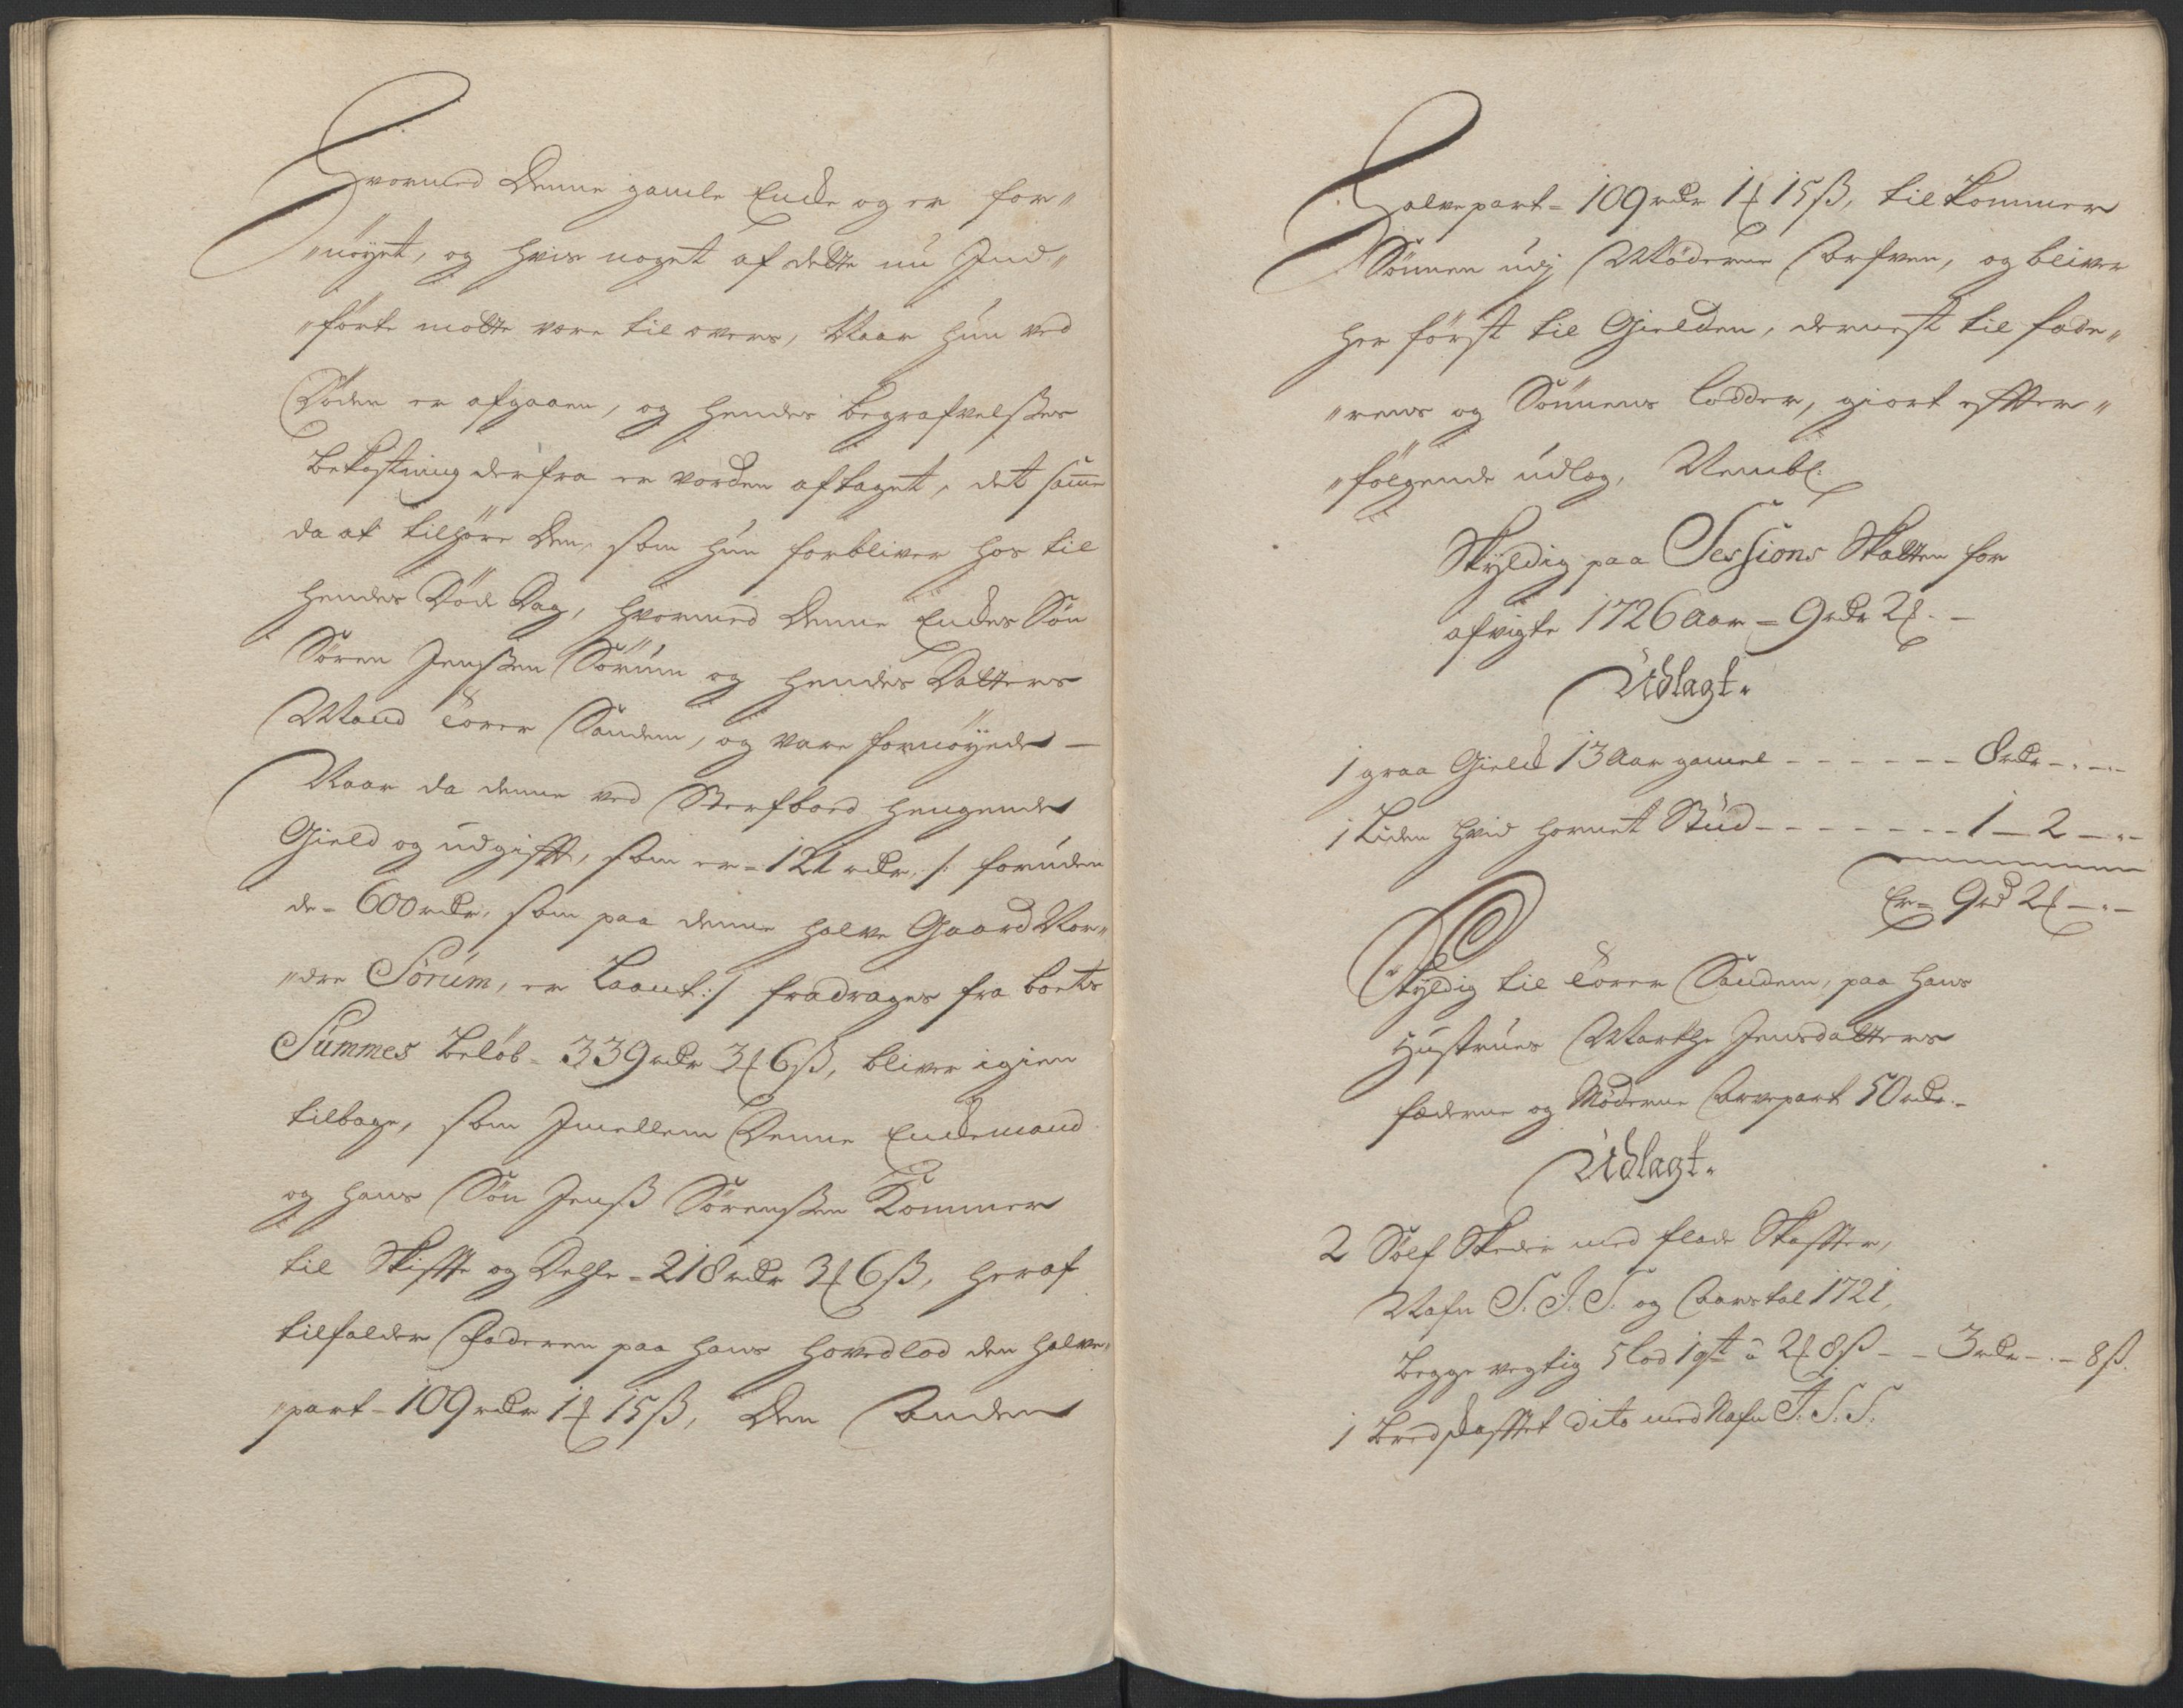 Hvormed Denne gamle Encke og er for„
„nöyet, og hvis noget af dette nu Ind„
„förte motte være til overs, Naar hun ved
Döden er afgaaen, og hendes begrafvelsses
bekostning derfra er vorden aftaget, det samme
da at tilhöre Den, som hun forbliver hos til
hendes Död Dag, hvormed Denne Enckes Sön
Sören Jenssen Sörum og hendes Datters
Mand Tover Sandem, og vare fornöyede —
Naar da denne ved Sterfboed hengende
Gield og udgifft, som er = 121 rdr. /: foruden
de = 600 rdr, som paa denne halve Gaard Nor„
„dre Sörum, er Laant :/ fradrages fra boets
Summes belöb = 339 rdr 3 ƒ 6 ß, bliver igien
tilbage, som Imellem Denne Enckemand
og hans Sön Jenß Sörenssen Kommer
til Skiffte og Dehle = 218 rdr 3 ƒ 6 ß, heraf
tilfalder Faderen paa hans hovedlod den halve„
„part = 109 rdr 1 ƒ 15 ß, Den Anden
Halvepart = 109 rdr 1 ƒ 15 ß, tilkommer
Sönnen udj Möderne Arfven, og bliver
her först til Gielden, dernest til fade„
„rens og Sönnens Lodder, giort effter„
„fölgende udlæg, Nembl.
Skyldig paa Sessions Skatten for
afvigte 1726 Aar = 9 rdr 2 ƒ. –
Udlagt„
1 graa Gield 13 Aar gamel - - - - - - 8 rdr - „ - „ -
1 Liden hvid hornet Stud - - - - - - - 1 — 2 — „ -
Er = 9 rd 2 ƒ — „ —
Skyldig til Tover Sandem, paa hans
Hustrues Marthe Jensdatters
fæderne og Möderne Arvepart 50 rdr. –
Udlagt„
2 Sölf Skeder med flade Skaffter,
Nafn S. I. S. og Aarstal 1721,
begge vegtig 5 lod 1 qt à 2 ƒ 8 ß - - 3 rdr - . - 8 ß.
1 bredskafftet dito med Nafn I. S. S.